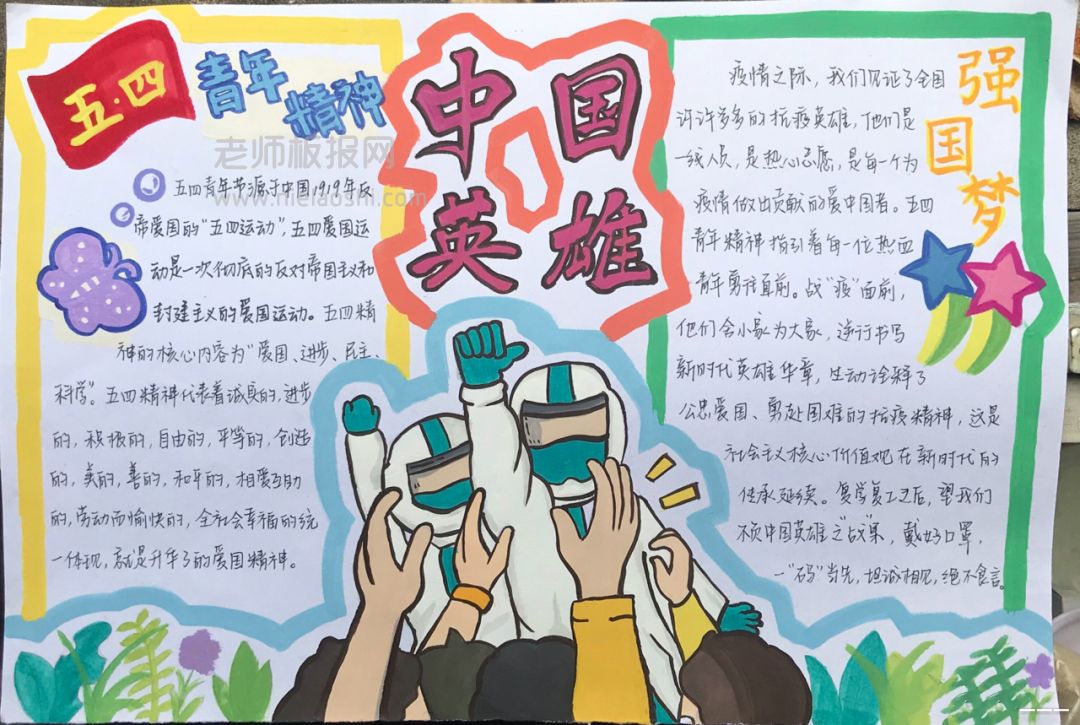 五·四
青年
精神
中国
英雄
强
国
梦
老师板报网
www.melaoshi.com
五四青年节源于中国1919年反
帝爱国的"五四运动",五四爱国运
动是一次彻底的反对帝国主义和
封建主义的爱国运动。五四精
神的核心内容为"爱国、进步、民主、
科学"。五四精神代表着诚真的,进步
的,积极的,自由的,平等的,创造
的,美的,善的,和平的,相爱互助
的,劳动而愉快的,全社会幸福的统
一体现,就是升华了的爱国精神。
疫情之际,我们见证了全国
许许多多的抗疫英雄,他们是
一线人员,是热心志愿,是每一个为
疫情做出贡献的爱中国者。五四
青年精神指引着每一位热血
青年勇往直前。战"疫"面前,
他们舍小家为大家,逆行书写
新时代英雄华章,生动诠释了
公忠爱国、勇赴国难的抗疫精神,这是
社会主义核心价值观在新时代的
传承延续。复学复工之后,望我们
不负中国英雄之"战"果,戴好口罩,
一"码"当先,坦诚相见,绝不食言。